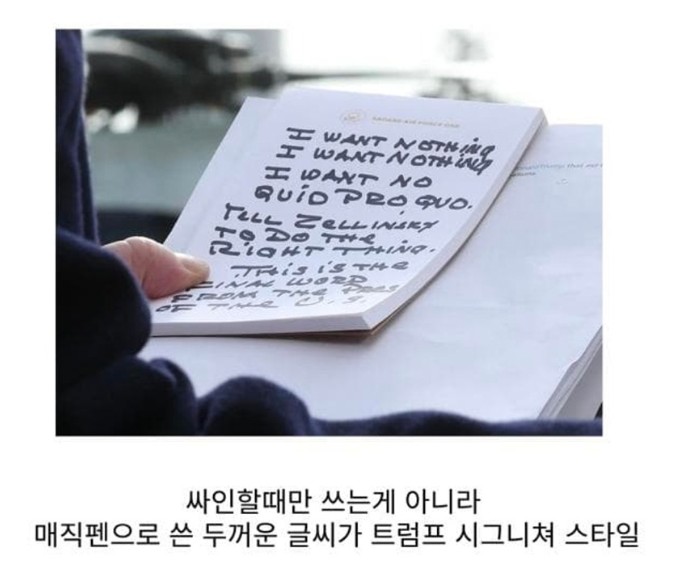 ABOARD AIR FORCE ONE
I WANT NOTHING
I WANT NOTHING
I WANT NO
QUID PRO QUO.
TELL ZELLINSKY
TO DO THE
RIGHT THING.
THIS IS THE
FINAL WORD
FROM THE PRES
OF THE U.S.
싸인할때만 쓰는게 아니라
매직펜으로 쓴 두꺼운 글씨가 트럼프 시그니쳐 스타일